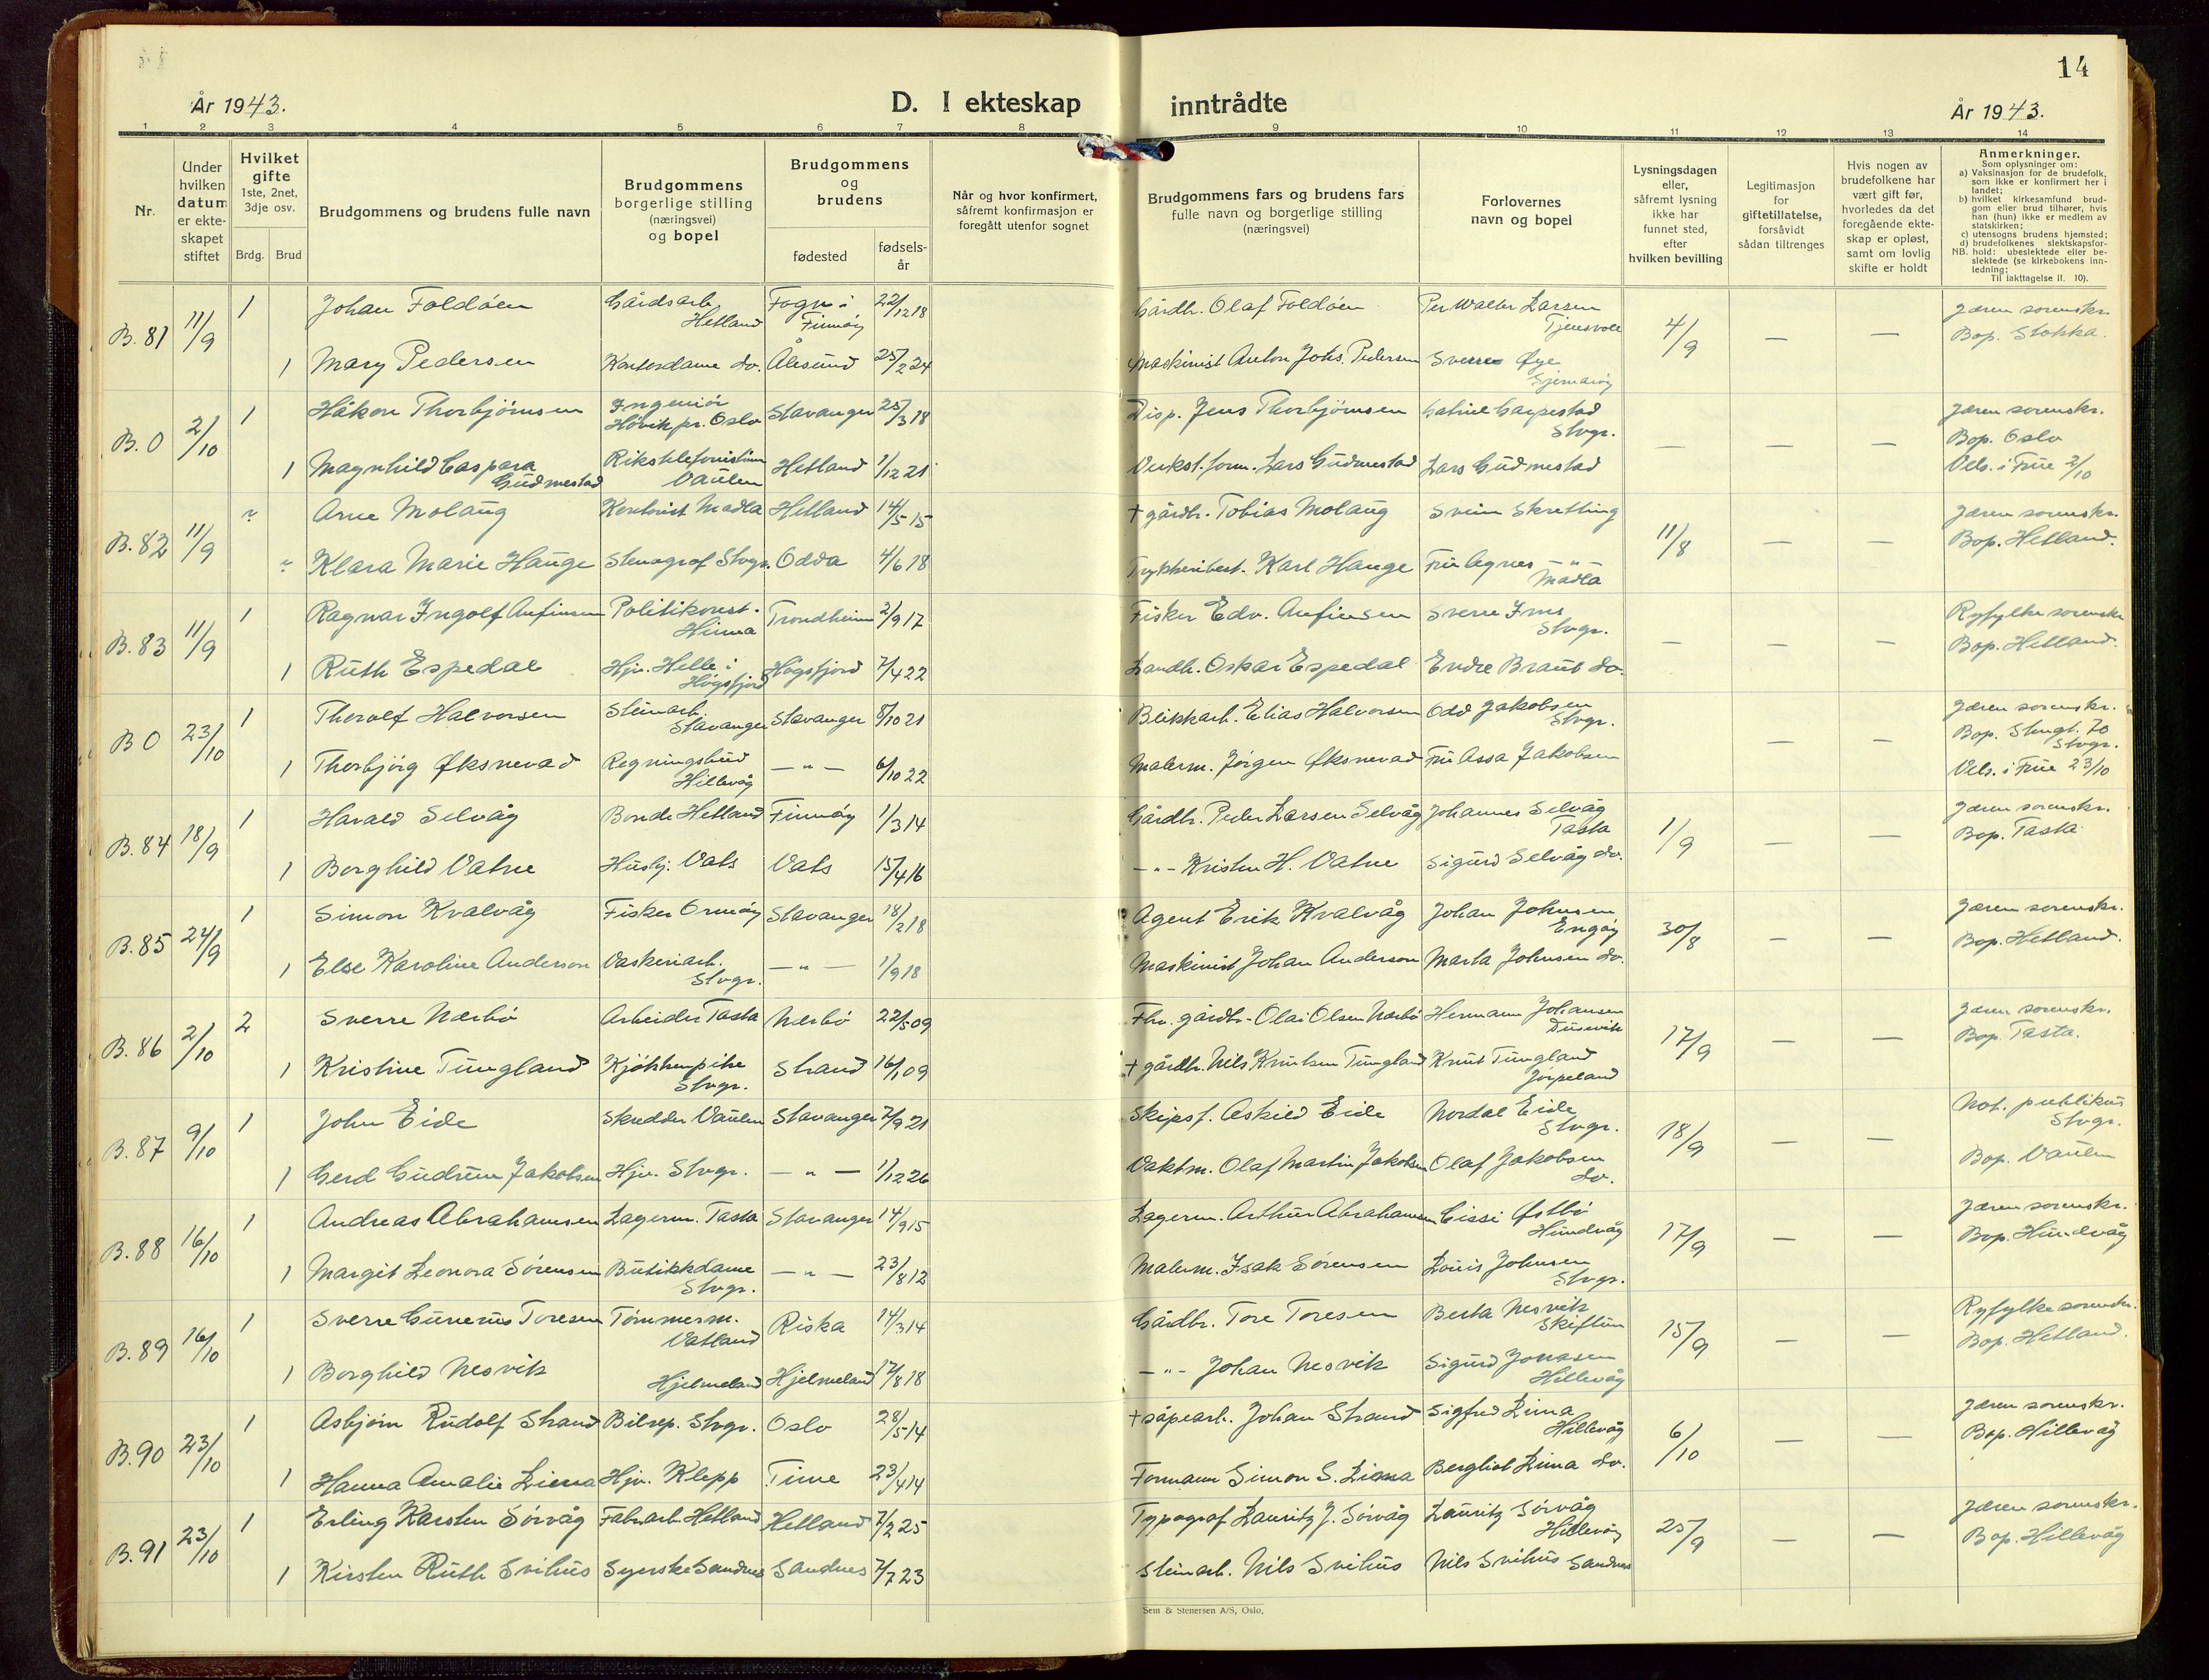 14
År 1943.
D. I ekteskap inntrådte
År 1943.
1 2 3 4 5 6 7 8 9 10 11 12 13 14
Nr.
Under hvilken datum er ekteskapet stiftet
Hvilket gifte 1ste, 2net, 3dje osv.
Brdg. Brud
Brudgommens og brudens fulle navn
Brudgommens borgerlige stilling (næringsvei) og bopel
Brudgommens og brudens
fødested
fødsels-år
Når og hvor konfirmert, såfremt konfirmasjon er foregått utenfor sognet
Brudgommens fars og brudens fars fulle navn og borgerlige stilling (næringsvei)
Forlovernes navn og bopel
Lysningsdagen eller, såfremt lysning ikke har funnet sted, efter hvilken bevilling
Legitimasjon for giftetillatelse, forsåvidt sådan tiltrenges
Hvis nogen av brudefolkene har vært gift før, hvorledes da det foregående ekteskap er opløst, samt om lovlig skifte er holdt
Anmerkninger.
Som oplysninger om:
a) Vaksinasjon for de brudefolk, som ikke er konfirmert her i landet;
b) hvilket kirkesamfund brudgom eller brud tilhører, hvis han (hun) ikke er medlem av statskirken;
c) utensogns brudens hjemsted;
d) brudefolkenes slektskapsforhold: ubeslektede eller beslektede (se kirkebokens innledning;
NB. Til iakttagelse II. 10).
B. 81 11/9 1 Johan Foldöen Gårdsarb. Hetland Fogn i Finnöy 22/12 18 Gårdbr. Olaf Foldöen Per Walter Larsen Tjensvoll 4/9 — — Jæren sorenskr. Bop. Stokka.
1 Mary Pedersen Kontordame do. Ålesund 25/2 24 Maskinist Anton Johs. Pedersen Sverre Øye Sjernaröy
B. 0 2/10 1 Håkon Thorbjörnsen Ingeniör Hövik pr. Oslo Stavanger 25/3 18 Disp. Jens Thorbjörnsen Gabriel Garpestad Stvgr. — — — Jæren sorenskr. Bop. Oslo
1 Magnhild Caspara Gudmestad Rikstelefonistinne Vaulen Hetland 1/12 21 Verkst.form. Lars Gudmestad Lars Gudmestad Vels. i Frue 2/10
B. 82 11/9 Arne Molaug Kontorist Madla Hetland 14/5 15 † gårdbr. Tobias Molaug Svein Skretting 11/8 — — Jæren sorenskr. Bop. Hetland.
Klara Marie Hauge Stenograf Stvgr. Odda 4/6 18 Trykkeribest. Karl Hauge Fru Agnes —"— Madla
B. 83 11/9 1 Ragnar Ingolf Anfinsen Politikonst. Hinna Trondheim 2/9 17 Fisker Edv. Anfinsen Sverre Ims Stvgr. — — — Ryfylke sorenskr. Bop. Hetland.
1 Ruth Espedal Hjv. Helle i Högsfjord Högsfjord 7/4 22 Landh. Oskar Espedal Endre Braut do.
B 0 23/10 1 Thorolf Halvorsen Steinarb. Stavanger Stavanger 8/10 21 Blikkarb. Elias Halvorsen Odd Jakobsen Stvgr. — — Jæren sorenskr. Bop. 70 Stvgr.
1 Thorbjörg Øksnevad Regningsbud Hillevåg —"— 6/10 22 Malerm. Jörgen Øksnevad Fru Assa Jakobsen Vels. i Frue 23/10
B. 84 18/9 1 Harald Selvåg Bonde Hetland Finnöy 1/3 14 Gårdbr. Peder Larsen Selvåg Johannes Selvåg Tasta 1/9 — — Jæren sorenskr. Bop. Tasta
1 Borghild Vatne Husbj. Vats Vats 15/4 16 —"— Kristen H. Vatne Sigurd Selvåg do.
B. 85 24/9 1 Simon Kvalvåg Fisker Ormöy Stavanger 18/2 18 Agent Erik Kvalvåg Johan Johnsen Engöy 30/8 — — Jæren sorenskr. Bop. Hetland.
1 Else Karoline Anderson Vaskeriarb. Stvgr. —"— 1/9 18 Maskinist Johan Anderson Marta Johnsen do.
B. 86 2/10 2 Sverre Nærbö Arbeider Tasta Nærbö 22/5 09 Fhv. gårdbr. Olai Olsen Nærbö Hermann Johansen Dusevik 17/9 — — Jæren sorenskr. Bop. Tasta.
1 Kristine Tungland Kjökkenpike Stvgr. Strand 16/1 09 † gårdbr. Nils Knutsen Tungland Knut Tungland Jörpeland
B. 87 9/10 1 John Eide Skredder Vaulen Stavanger 7/9 21 Skipsf. Askild Eide Nordal Eide Stvgr. 18/9 — — Not. publikus Stvgr.
1 Gerd Gudrun Jakobsen Hjv. Stvgr. —"— 1/12 26 Vaktm. Olaf Martin Jakobsen Olaf Jakobsen do. Bop. Vaulen
B. 88 16/10 1 Andreas Abrahamsen Lagerm. Tasta Stavanger 14/9 15 Lagerm. Arthur Abrahamsen Cissi Østbö Hundvåg 17/9 — — Jæren sorenskr. Bop. Hundvåg
1 Margit Leonora Sörensen Butikkdame Stvgr. —"— 23/8 12 Malerm. Isak Sörensen Louis Johnsen Stvgr.
B. 89 16/10 1 Sverre Gunerius Toresen Tömmerm. Vatland Riska 14/3 14 Gårdbr. Tore Toresen Berta Nesvik Skiftun 15/9 — — Ryfylke sorenskr. Bop. Hetland.
1 Borghild Nesvik Hjelmeland Hjelmeland 17/8 18 —"— Johan Nesvik Sigurd Jonasen Hillevåg
B. 90 23/10 1 Asbjörn Rudolf Strand Bilrep. Stvgr. Oslo 28/5 14 † såpearb. Johan Strand Sigfred Lima Hillevåg 6/10 — — Jæren sorenskr. Bop. Hillevåg
1 Hanna Amalie Lima Hjv. Klepp Time 23/4 14 Formann Simon S. Lima Bergliot Lima do.
B. 91 23/10 1 Erling Karsten Sörvåg Fabr.arb. Hetland Hetland 7/2 25 Typograf Lauritz J. Sörvåg Lauritz Sörvåg Hillevåg 25/9 — — Jæren sorenskr. Bop. Hillevåg
1 Kirsten Ruth Svihus Syerske Sandnes Sandnes 7/7 23 Steinarb. Nils Svihus Nils Svihus Sandnes
Sem & Stenersen A/S, Oslo.